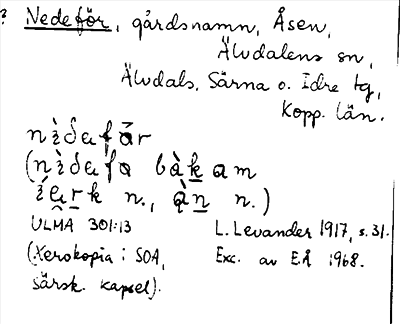 ? Nedeför, gårdsnamn, Åsen,
Älvdalens sn,
Älvdals, Särna o. Idre tg,
Kopp. län.
nìdafar
(nìdafo bàkam
íark n., àn n.)
ULMA 301:13 L. Levander 1917, s. 31.
(Xerokopia i SOA, Exc. av E.Å 1968.
särsk. kapsel).